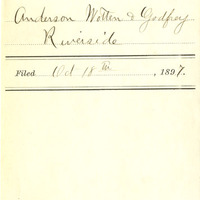 Anderson Wotten & Godfrey
Riverside
Filed Oct 18th, 1897.